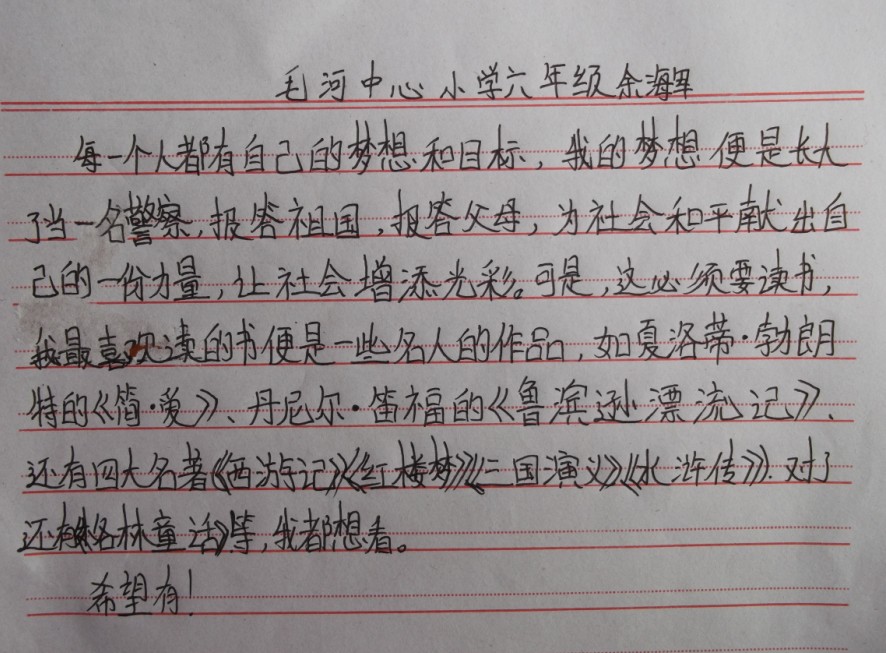 毛河中心小学六年级余海军
每一个人都有自己的梦想和目标，我的梦想便是长大
了当一名警察，报答祖国，报答父母，为社会和平献出自
己的一份力量，让社会增添光彩。可是，这必须要读书，
我最喜欢读的书便是一些名人的作品，如夏洛蒂·勃朗
特的《简·爱》、丹尼尔·笛福的《鲁滨逊漂流记》、
还有四大名著《西游记》《红楼梦》《三国演义》《水浒传》。对了
还有《格林童话》等，我都想看。
希望有！